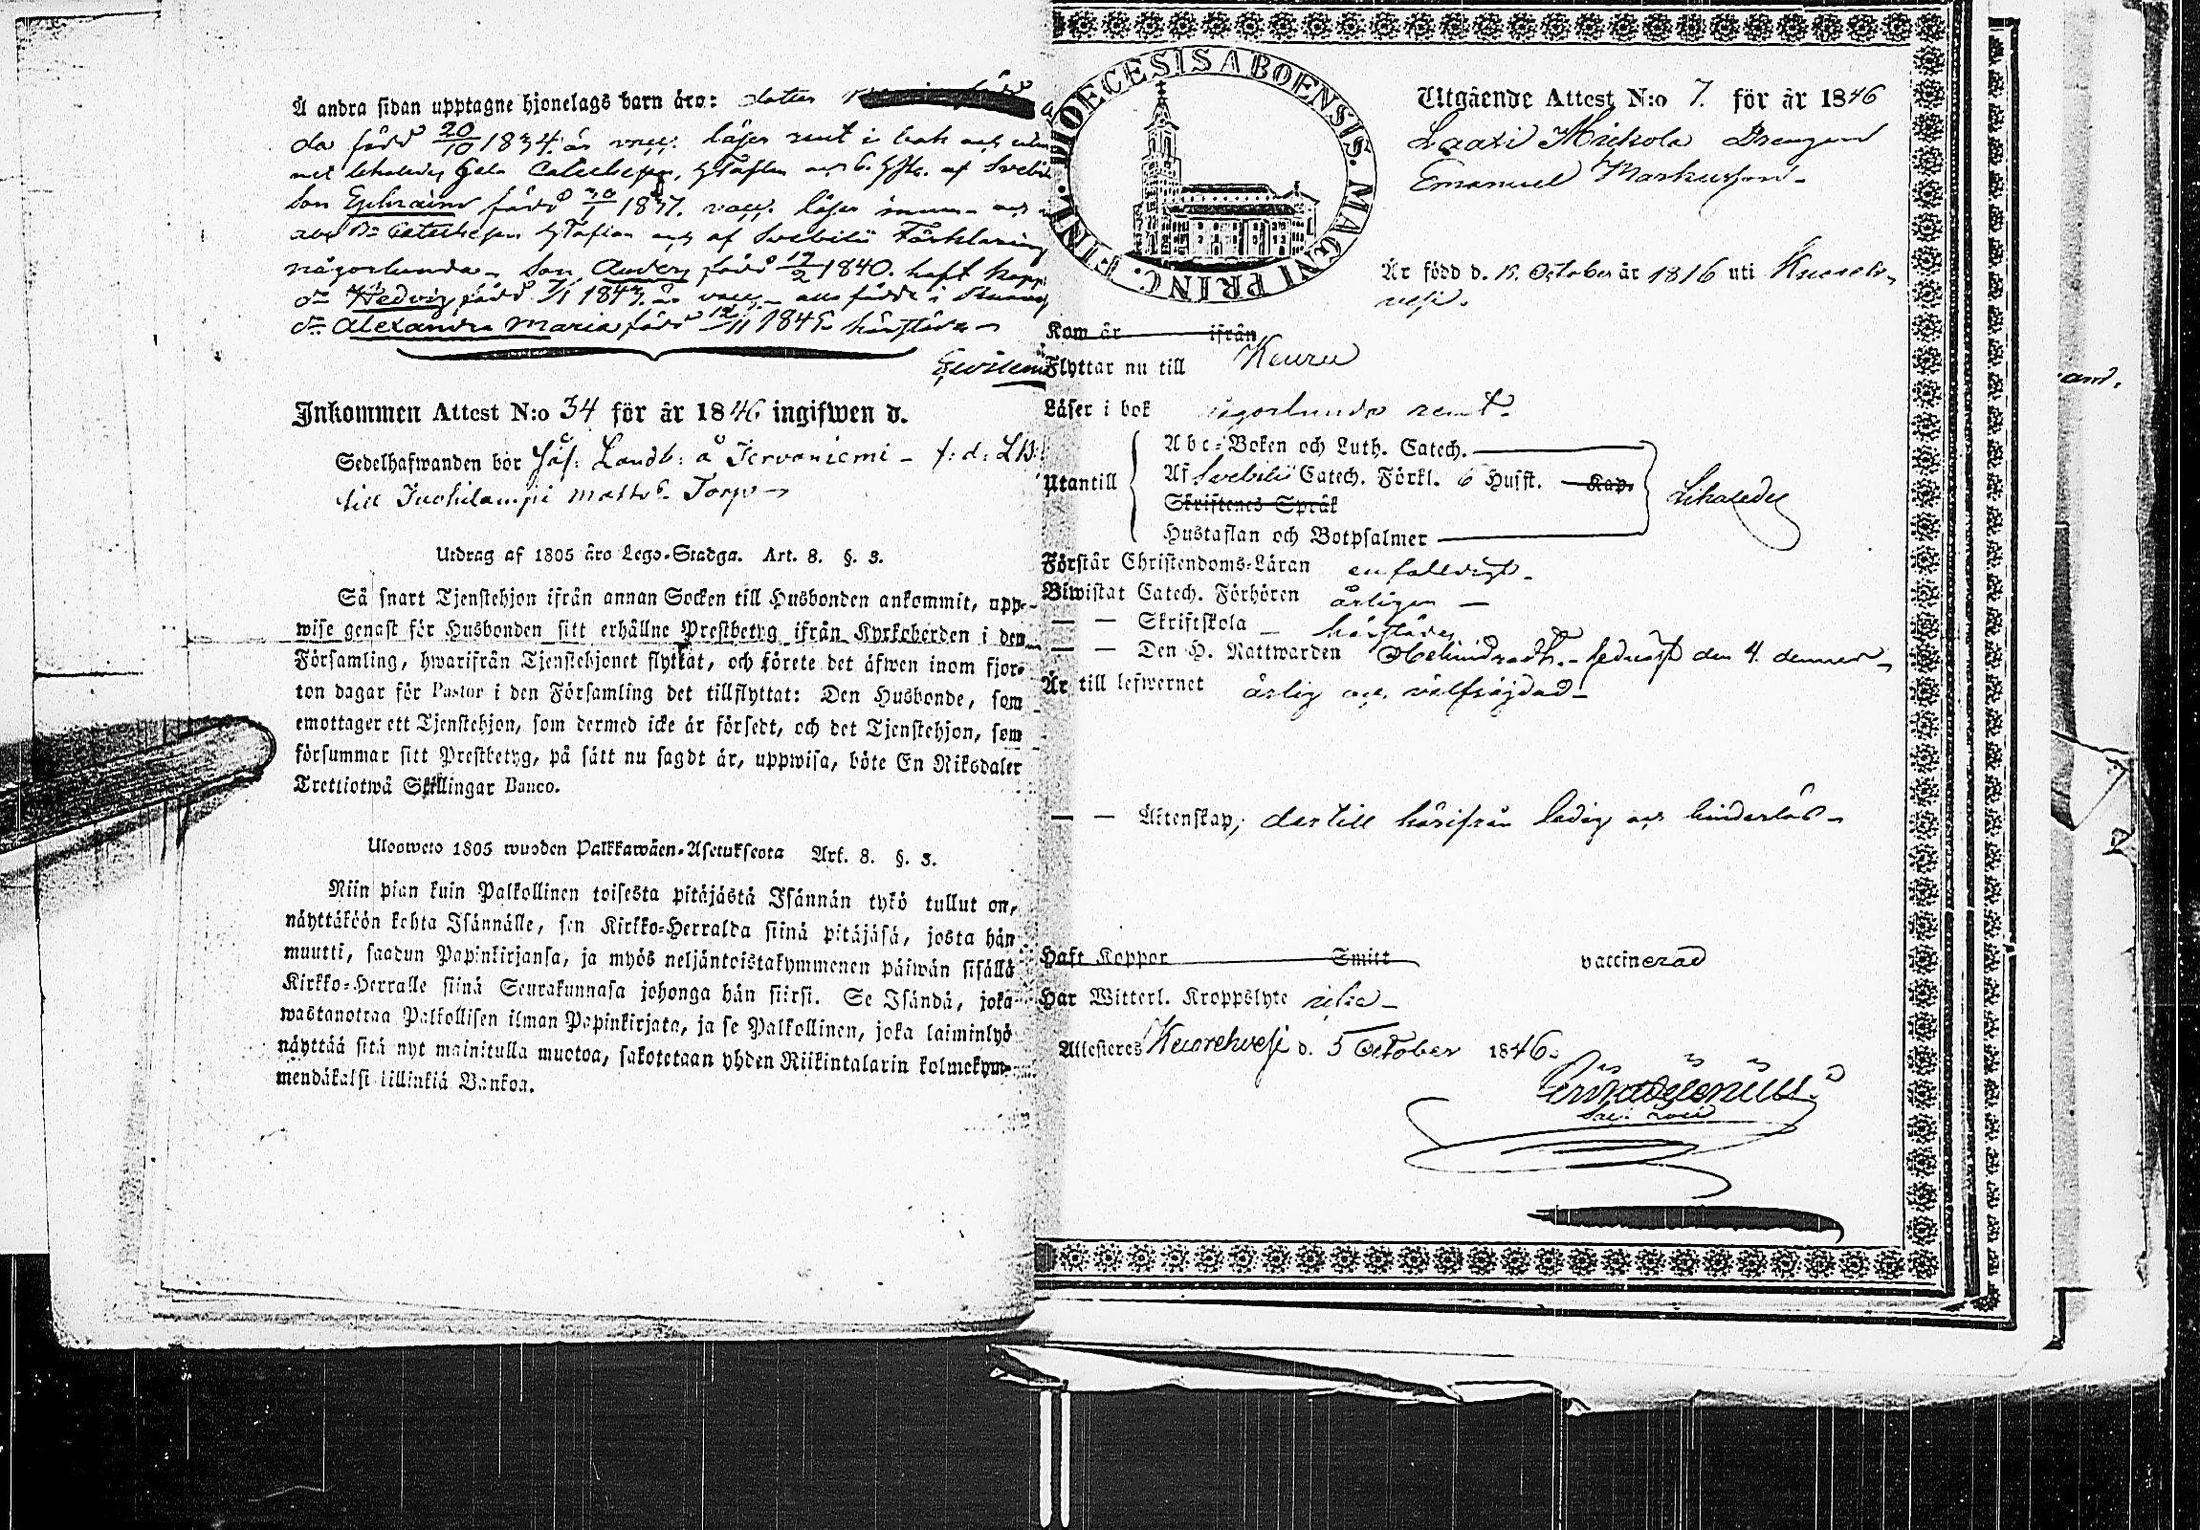 Å andra sidan upptagne hjonelags barn äro: dotter
da född 20/10 1834. är vacc: läser rent i bok och utan
med likaledes hela Catechesen, H:Taflan och 6. Hfst. af Svebilii
Son Ephraim född 30/1 1837. vacc. läser innan och
Catechesen H:Taflan och af Svebilii Förklaring
någorlunda - Son Anders född 17/2 1840. haft kopp:
d:o Hedvig född 1/1 1843. är vacc. - alla födde i
d:o Alexandra Maria född 12/11 1845 härstädes -
Inkommen Attest N:o 34 för år 1846 ingifwen d.
Sedelhafwanden bor Landb: å Jervaniemi - f: d: LB:
till Torp
Utdrag af 1805 års Lego-Stadga. Art. 8. §. 3.
Så snart Tjenstehjon ifrån annan Socken till Husbonden ankommit, upp-
wise genast för Husbonden sitt erhållne Prestbetyg ifrån Kyrkoherden i den
Församling, hwarifrån Tjenstehjonet flyttat, och förete det äfwen inom fjor-
ton dagar för Pastor i den Församling det tillflyttat: Den Husbonde, som
emottager ett Tjenstehjon, som dermed icke är försedt, och det Tjenstehjon, som
försummar sitt Prestbetyg, på sätt nu sagdt är, uppwisa, böte En Riksdaler
Trettiotwå Skillingar Banco.
Ulosweto 1805 wuoden Palkkawäen-Asetuksesta Art. 8. §. 3.
Niin pian kuin Palkollinen toisesta pitäjästä Isännän tykö tullut on,
näyttäköön kohta Isännälle, sen Kirkko-Herralda siinä pitäjäsä, josta hän
muutti, saadun Papinkirjansa, ja myös neljäntoistakymmenen päiwän sisällä
Kirkko-Herralle siinä Seurakunnasa johonga hän siirsi. Se Isändä, joka
wastanottaa Palkollisen ilman Papinkirjata, ja se Palkollinen, joka laiminlyö
näyttää sitä nyt mainitulla muotoa, sakotetaan yhden Riikintalarin kolmekym-
mendäkaksi killinkiä Bankoa.
DIOECESIS ABOENSIS. MAGNI PRINC. FINL.
Utgående Attest N:o 7. för år 1846
Laaxi Mickola Drengen
Emanuel Markusson -
Är född d. 19. October år 1816 uti Kuoreh-
vesi.
Kom år ifrån
Flyttar nu till Keuru
Läser i bok någorlunda rent.
Utantill
Abc-Boken och Luth. Catech.
Af Svebilii Catech. Förkl. 6 Husst. Kap.
Skriftenes Språk
Hustaflan och Botpsalmer
Likaledes
Förstår Christendoms-Läran enfalldigt -
Biwistat Catech. Förhören årligen -
— — Skriftskola - härstädes
— — Den H. Nattwarden Obehindradt. - sednast den 4. dennes -
Är till lefwernet ärlig och välfräjdad -
— — Äktenskap, dertill härifrån ledig och hinderlös -
Haft Koppor Smitt vaccinerad
Har Witterl. Kroppslyte icke -
Attesteres Kuorehvesi d. 5 October 1846.